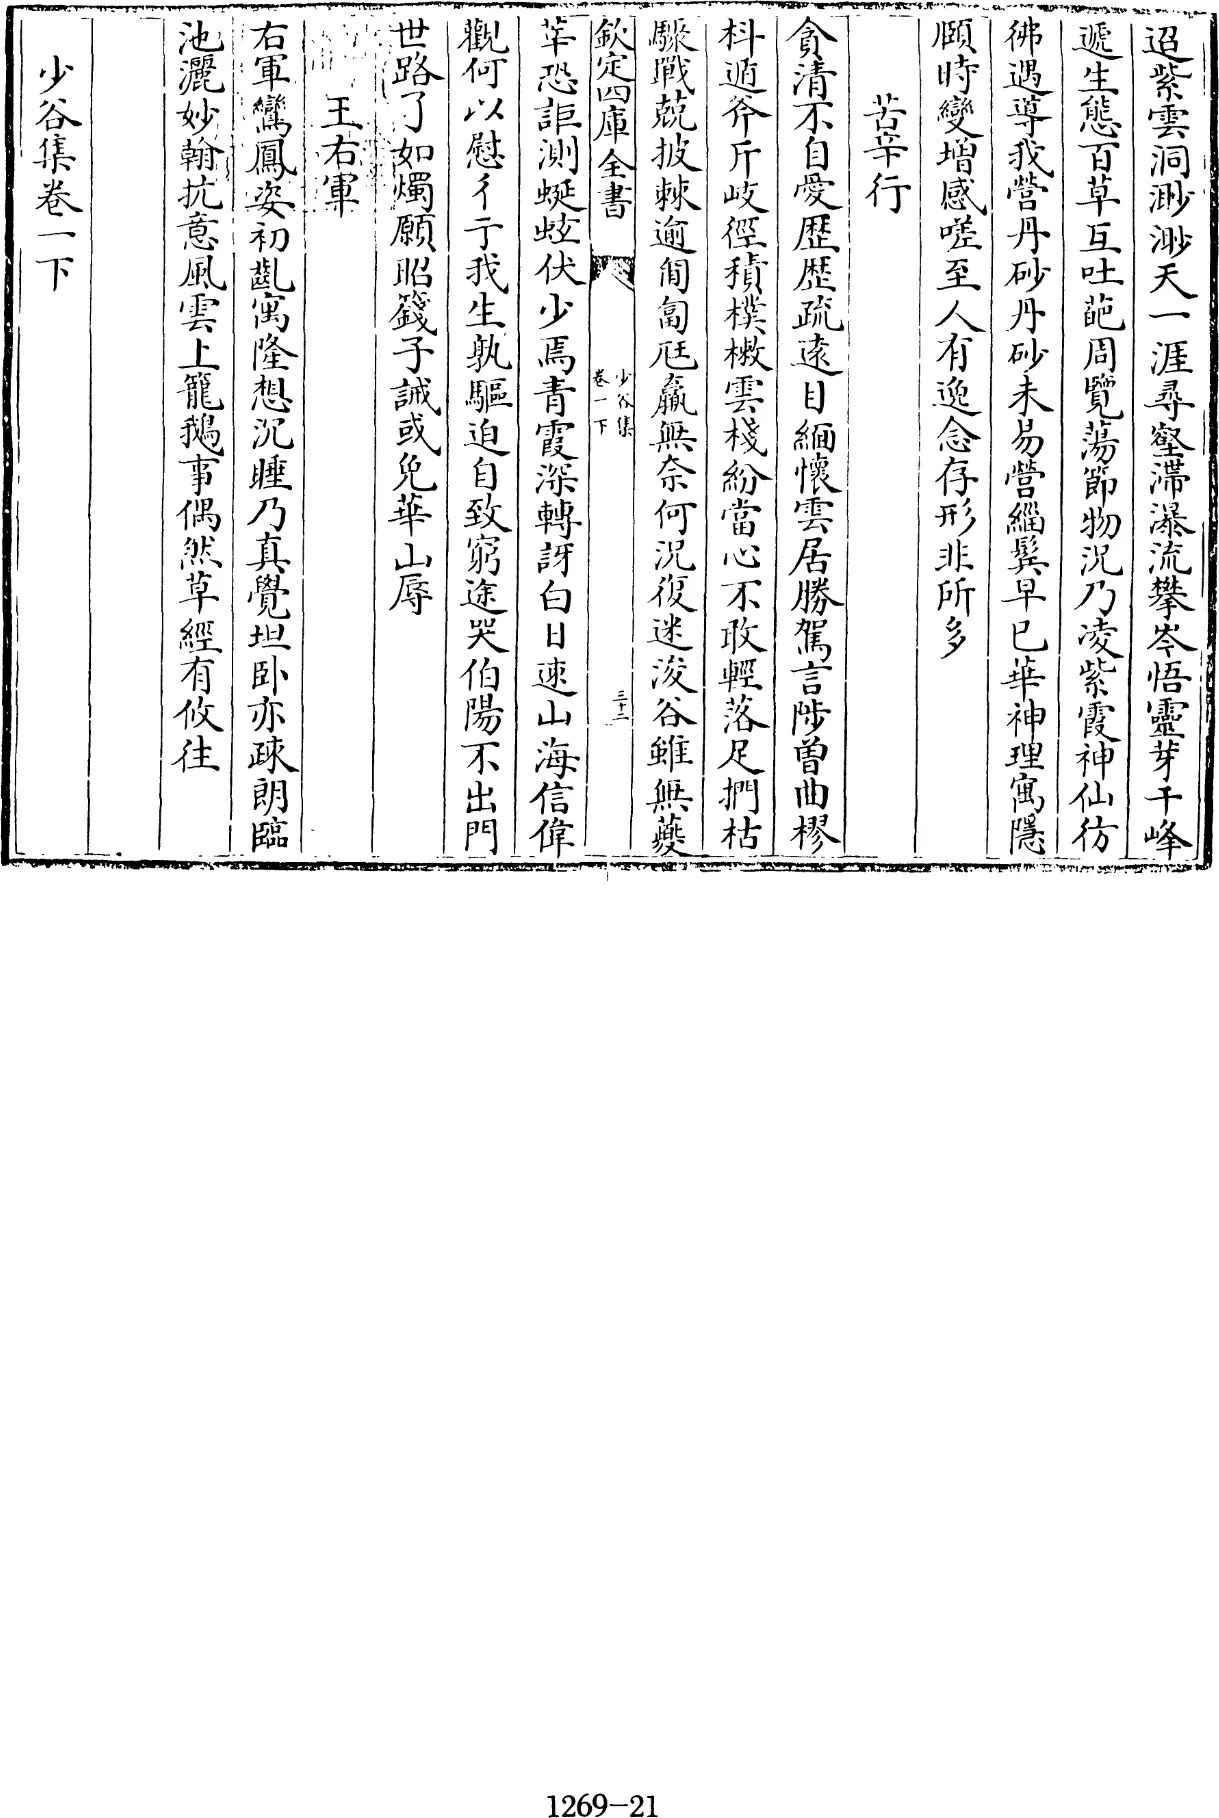 迢紫雲洞渺渺天一涯尋壑滯瀑流攀岑悟靈芽千峰
遞生態百草互吐葩周覽蕩節物況乃凌紫霞神仙彷
彿遇導我營丹砂丹砂未易營緇鬓早已華神理寓隱
頤時變增感嗟至人有逸念存形非所多
苦辛行
貪清不自愛歴歴疏逺目緬懷雲居勝駕言陟曽曲樛
枓遁斧斤岐徑積樸樕雲棧紛當心不敢輕落足捫枯
驟戰兢披棘逾匍匐尫羸無奈何況復迷浚谷雖無藥
欽定四庫全書
少谷集
卷一下
三十二
苹恐詎測蜒蚿伏少焉青霞深轉訝白日速山海信偉
觀何以慰彳亍我生孰驅迫自致窮途哭伯陽不出門
世路了如燭願昭箋子誡或免華山辱
王右軍
右軍鸞鳳姿初齓寓隆想沉睡乃真覺坦卧亦疎朗臨
池灑妙翰抗意風雲上籠鵝事偶然草經有攸往
少谷集卷一下
1269-21